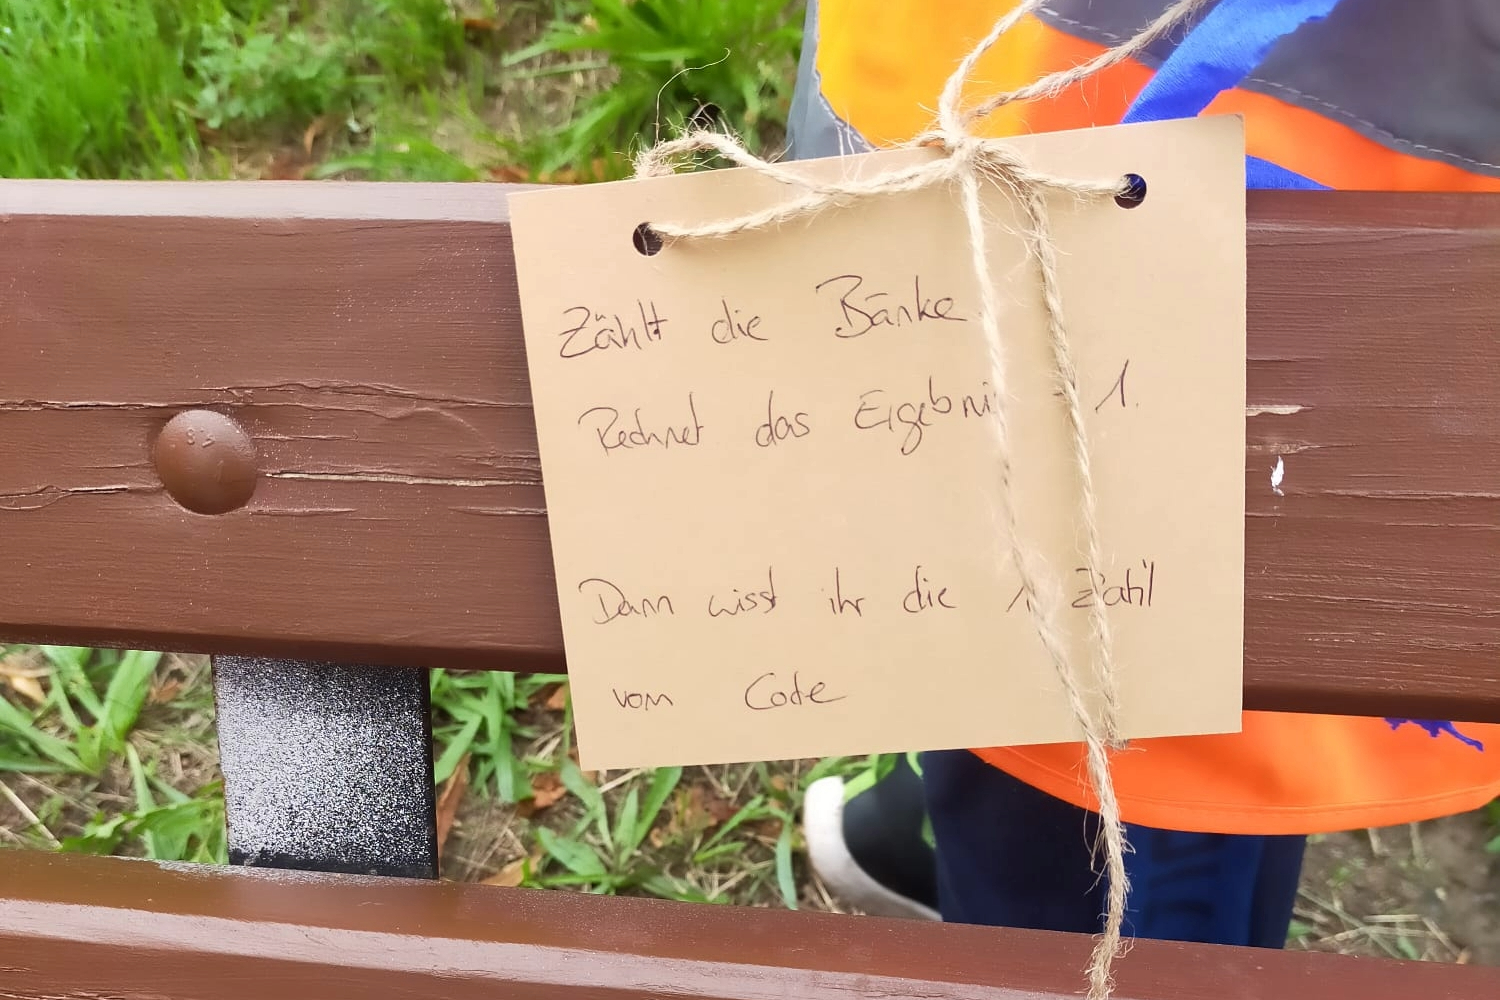 Zählt die Bänke.
Rechnet das Ergebnis - 1.
Dann wisst ihr die 1. Zahl
vom Code